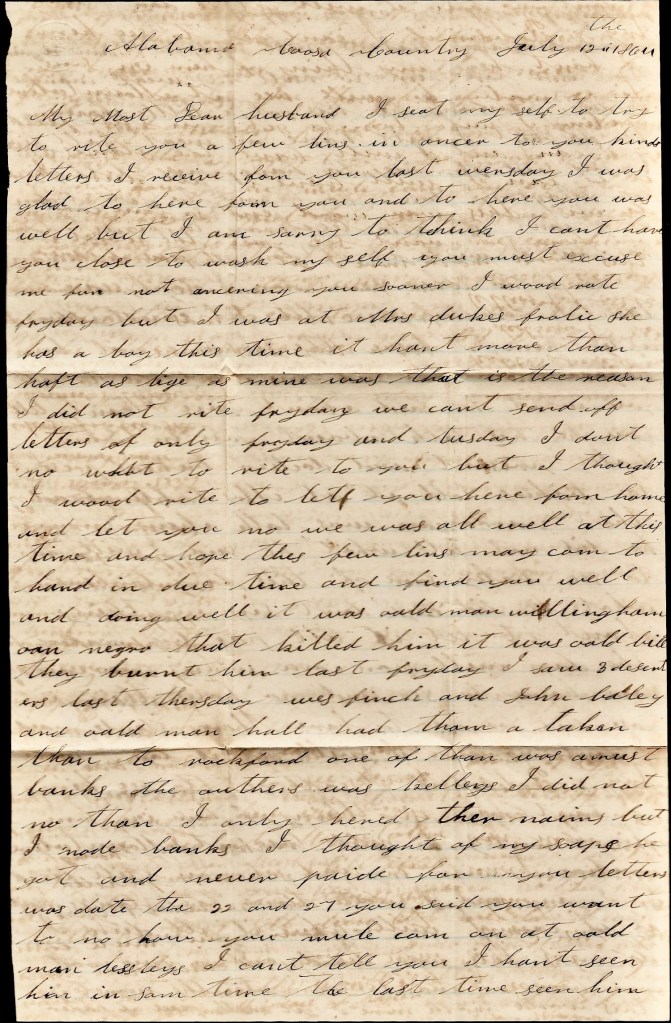 the
Alabama Coosa Country July 12 1864
My Most Dear husband I seat my self to try
to rite you a few lins in ancer to you kinde
letters I receive fom you last wensday I was
glad to here fom you and to here you was
well but I am sarry to think I cant have
you close to wash my self you must excuse
me far not ancering you sooner I wood rote
fryday but I was at Mrs dukes frolic she
has a boy this time it hant more than
haft as bige as mine was that is the reason
I did not rite fryday we cant send off
letters of only fryday and tusday I don't
no what to rite to you but I thought
I wood rite to let you here fom home
and let you no we was all well at this
time and hope thes few lins may com to
hand in due time and find you well
and doing well it was oald man willingham
oan negro that killed him it was oald bill
they burnt him last fryday I saw 3 desert
ers last thersday wes finch and John baley
and oald man hall had tham a taken
than to rockford one of than was
banks the outhers was kelleys I did not
no than I only hered ther naims but
I node banks I thought of my soape he
got and never paide far you letters
was date the 22 and 27 you said you want
to no how you mule com on at oald
man lessleys I cant tell you I hant seen
him in som time the last time seen him